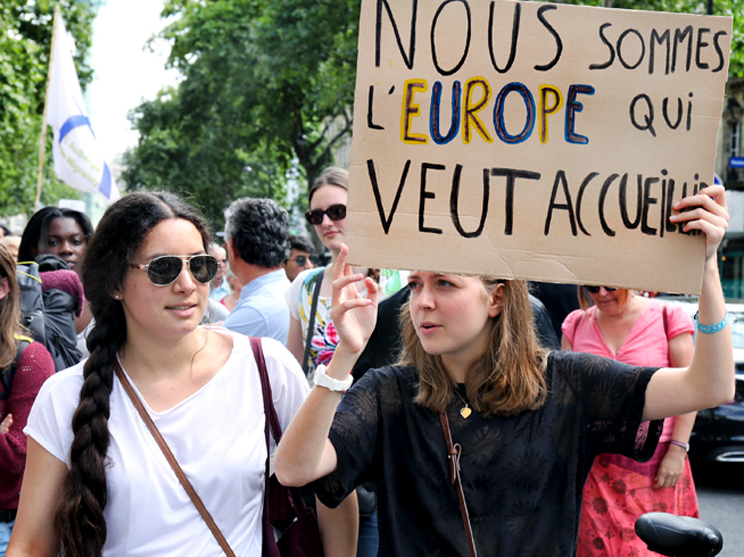 NOUS SOMMES
L'EUROPE QUI
VEUT ACCUEILLIR